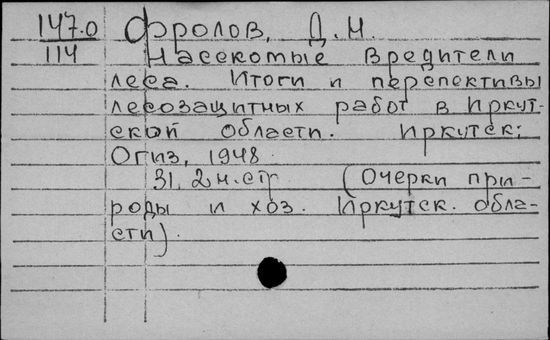 147.0 Фролов, Д.Н.
114 Насекомые вредители
леса. Итоги и перспективы
лесозащитных работ в Иркут-
ской области. Иркутск;
Огиз, 1948
31, 2 н. стр (Очерки при-
роды и хоз. Иркутск. обла-
сти)